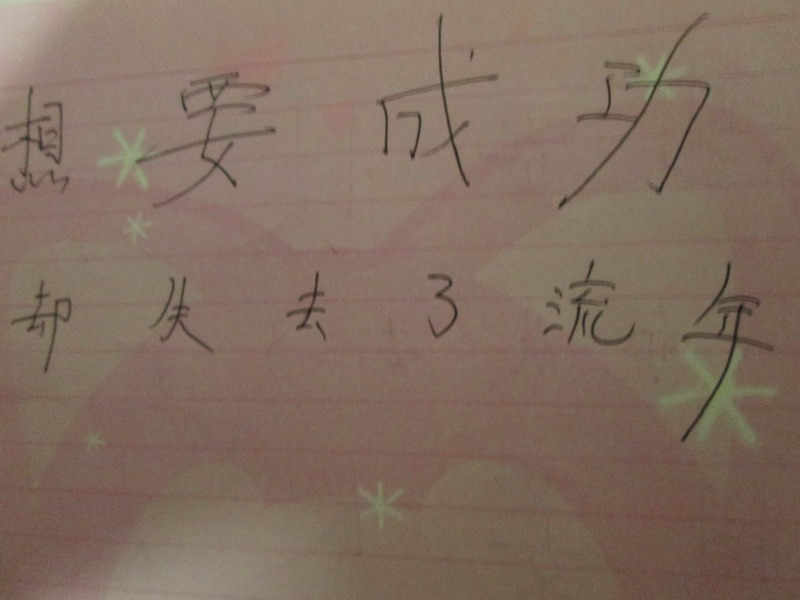 想要成功
却失去了流年